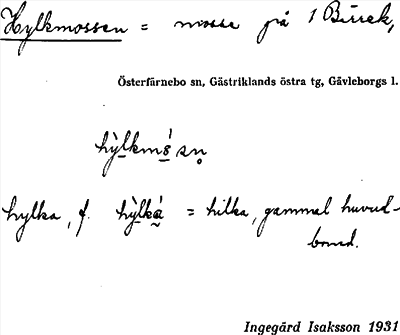 Hylkmossen = mosse på 1 Birrek,
Österfärnebo sn, Gästriklands östra tg, Gävleborgs l.
hỳlkms̲ án̥
hylka, f. hỳlká = hilka, gammal huvud-
bond.
Ingegärd Isaksson 1931